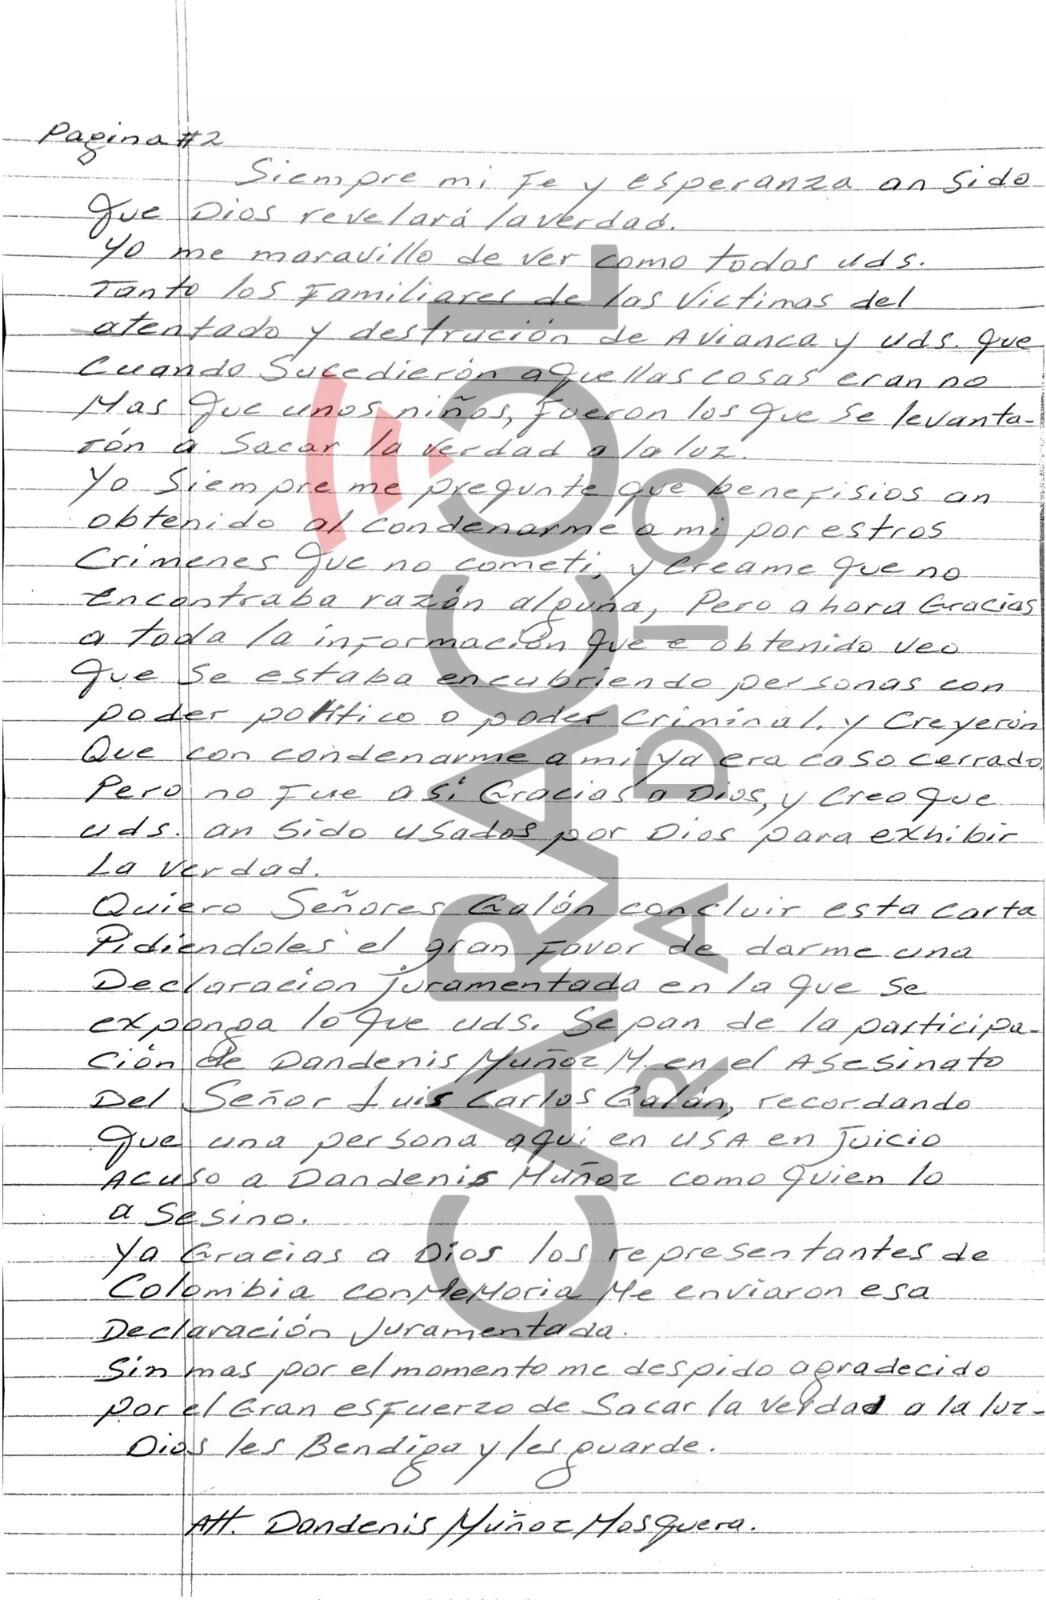 Pagina #2
Siempre mi Fe y esperanza an sido
Que Dios revelará la verdad.
Yo me maravillo de ver como todos uds.
Tanto los Familiares de las Victimas del
atentado y destrución de Avianca y uds. que
Cuando Sucedierón aquellas cosas eran no
Mas Que unos niños, fueron los que se levanta-
rón a Sacar la verdad a la luz.
Yo Siempre me pregunte que benefisios an
obtenido al condenarme a mi por estros
Crimenes Que no cometi, y creame que no
encontraba razón alguna, Pero ahora Gracias
a toda la información que e obtenido veo
que se estaba encubriendo personas con
poder político o poder criminal. y Creyerón
Que con condenarme a mi ya era caso cerrado.
Pero no fue así Gracias a Dios, y Creo que
uds. an sido usados por Dios para exhibir
La verdad.
Quiero Señores Galán concluir esta carta
Pidiendoles el gran Favor de darme una
Declaracion juramentada en la que se
exponga lo que uds. Sepan de la participa-
ción de Dandenis Muñoz M. en el Asesinato
Del Señor Luis Carlos Galán, recordando
que una persona aqui en USA en Juicio
Acuso a Dandenis Muñoz como quien lo
asesino.
Ya Gracias a Dios los representantes de
Colombia con Memoria Me enviaron esa
Declaración Juramentada.
Sin mas por el momento me despido agradecido
por el Gran esfuerzo de Sacar la verdad a la luz-
Dios les Bendiga y les guarde.
Att. Dandenis Muñoz Mosquera.
CARACOL
RADIO